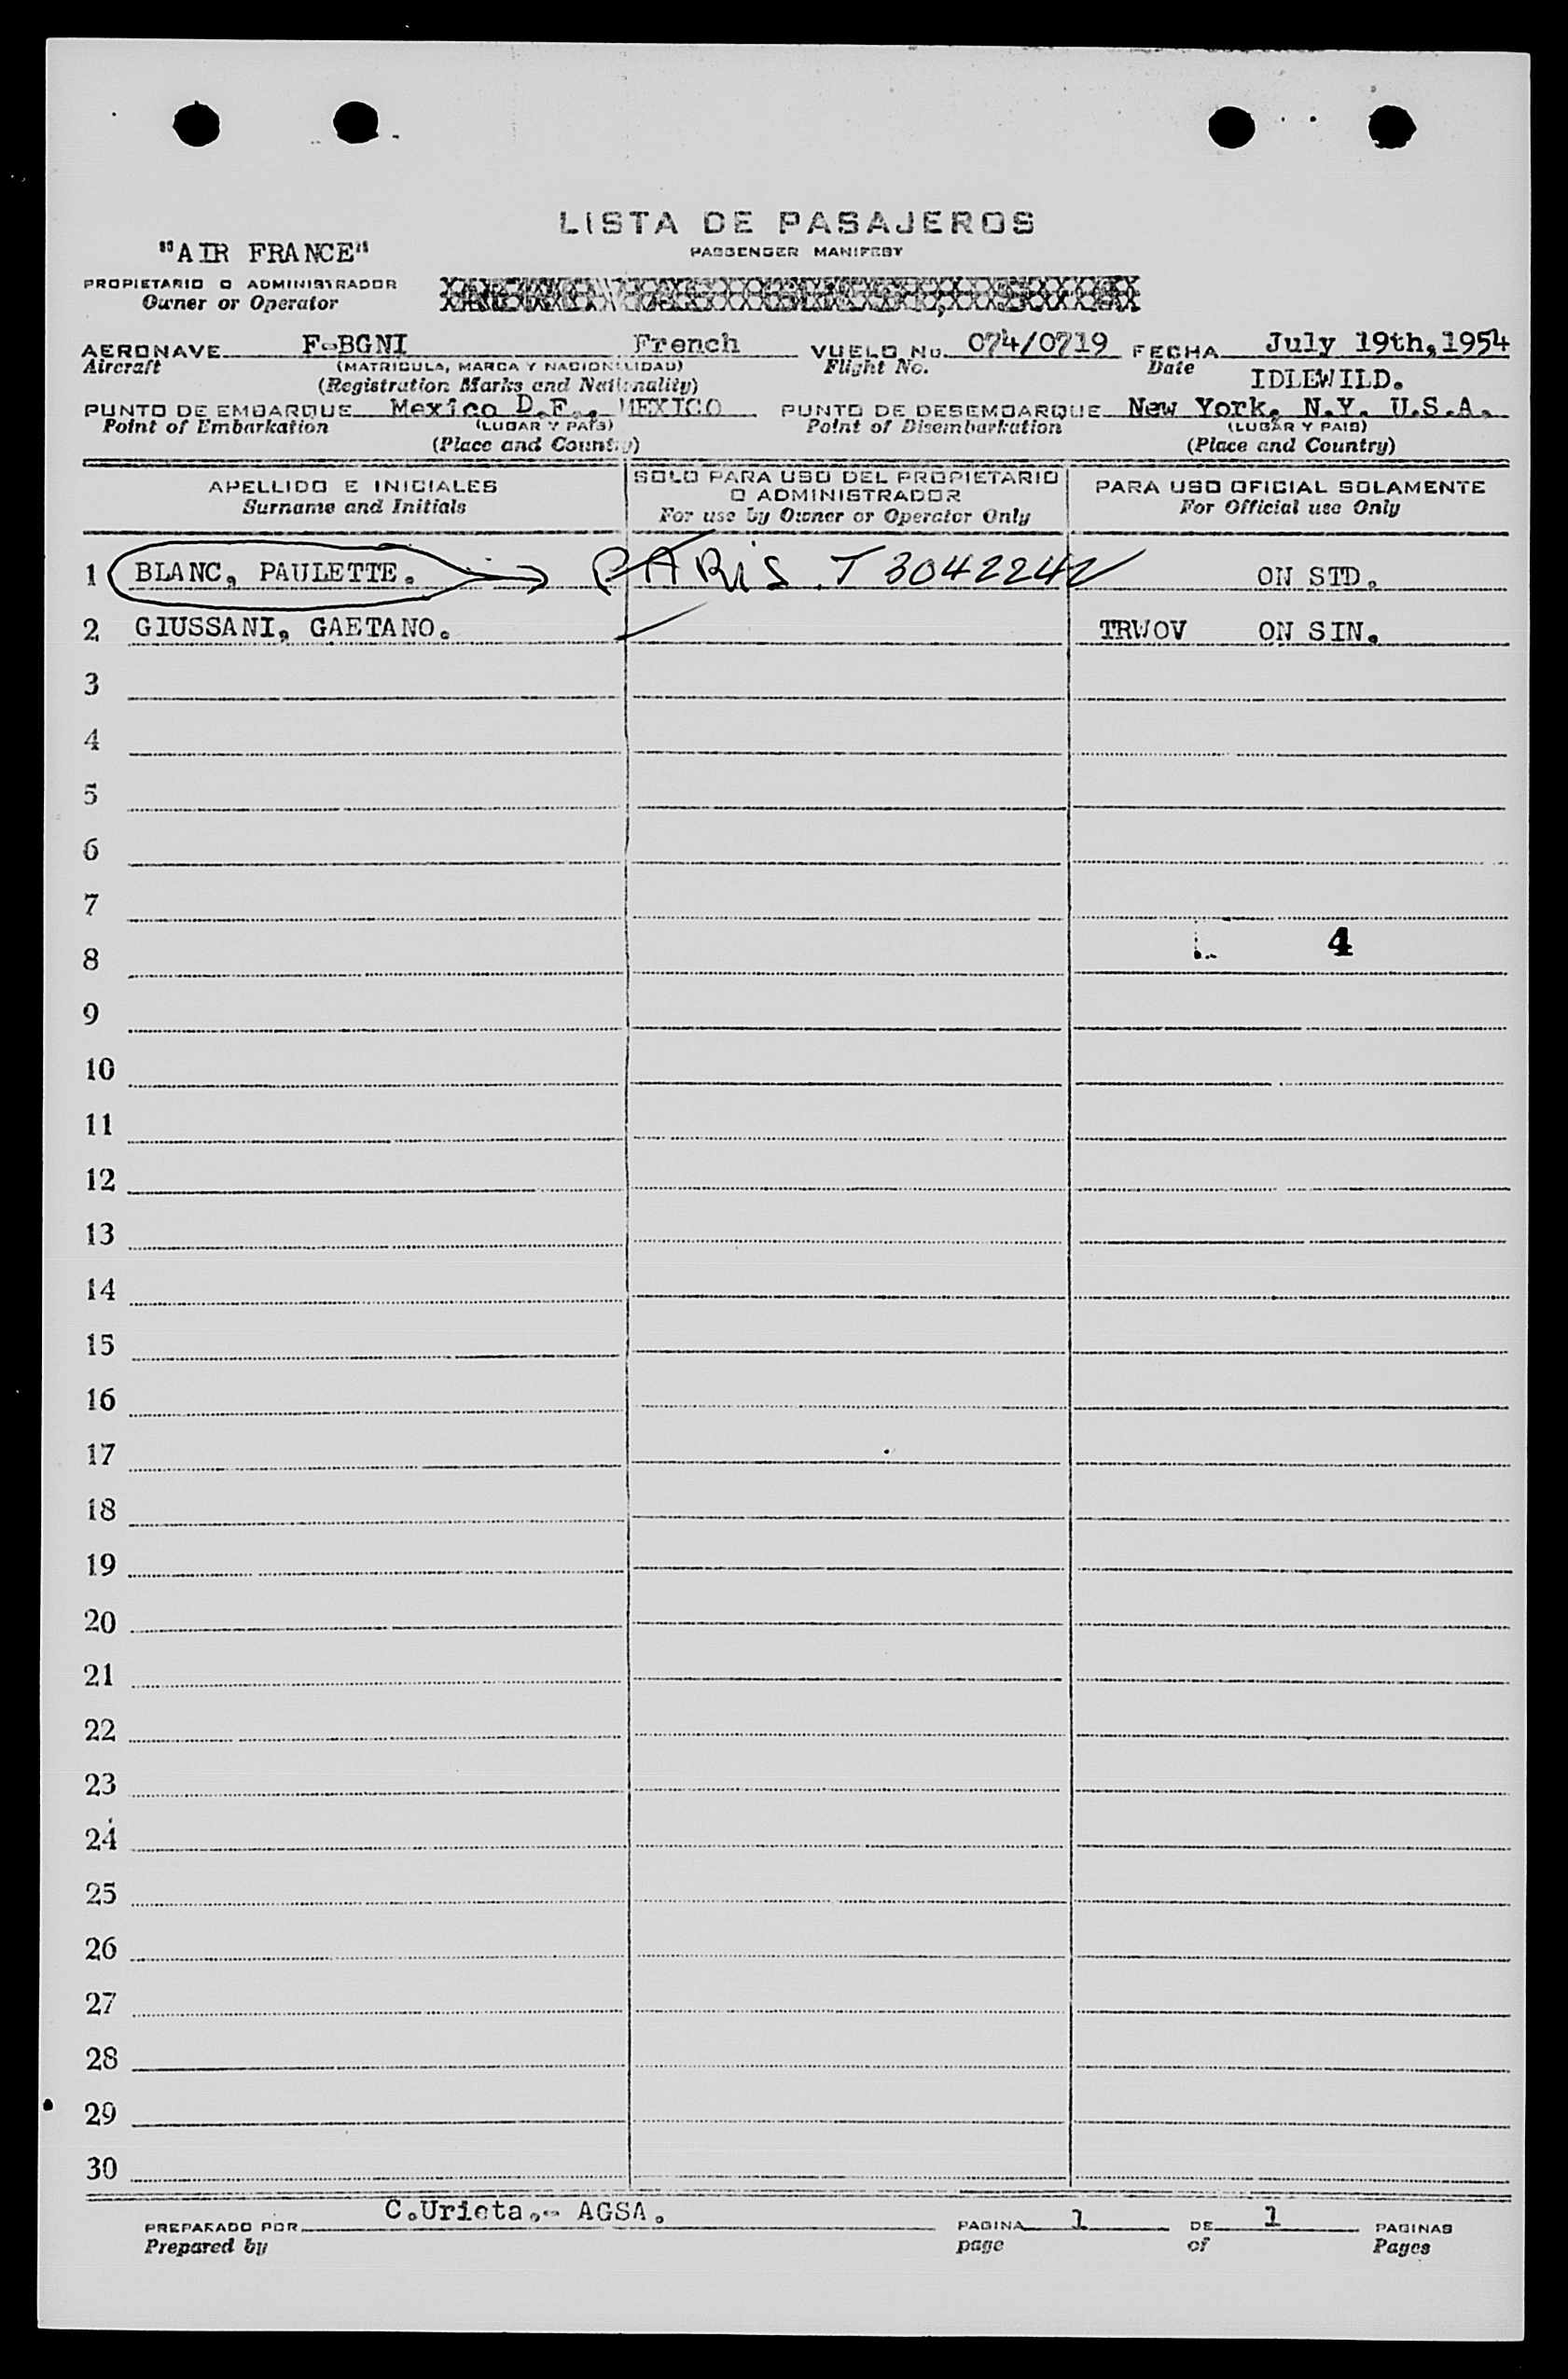 LISTA DE PASAJEROS
PASSENGER MANIFEST
"AIR FRANCE"
PROPIETARIO O ADMINISTRADOR
Owner or Operator
AERONAVE F-BGNI French VUELO No. 074/0719 FECHA July 19th,1954
Aircraft (MATRICULA, MARCA Y NACIONALIDAD) Flight No. Date
(Registration Marks and Nationality) IDLEWILD.
PUNTO DE EMBARQUE Mexico D.F., MEXICO PUNTO DE DESEMBARQUE New York, N.Y. U.S.A.
Point of Embarkation (LUGAR Y PAIS) Point of Disembarkation (LUGAR Y PAIS)
(Place and Country) (Place and Country)
APELLIDO E INICIALES
Surname and Initials
SOLO PARA USO DEL PROPIETARIO
O ADMINISTRADOR
For use by Owner or Operator Only
PARA USO OFICIAL SOLAMENTE
For Official use Only
1 BLANC, PAULETTE. PARIS. T 3042242 ON STD.
2 GIUSSANI, GAETANO. TRWOV ON SIN.
3
4
5
6
7
8 4
9
10
11
12
13
14
15
16
17
18
19
20
21
22
23
24
25
26
27
28
29
30
PREPARADO POR C.Urieta.- AGSA. PAGINA 1 DE 1 PAGINAS
Prepared by page of Pages